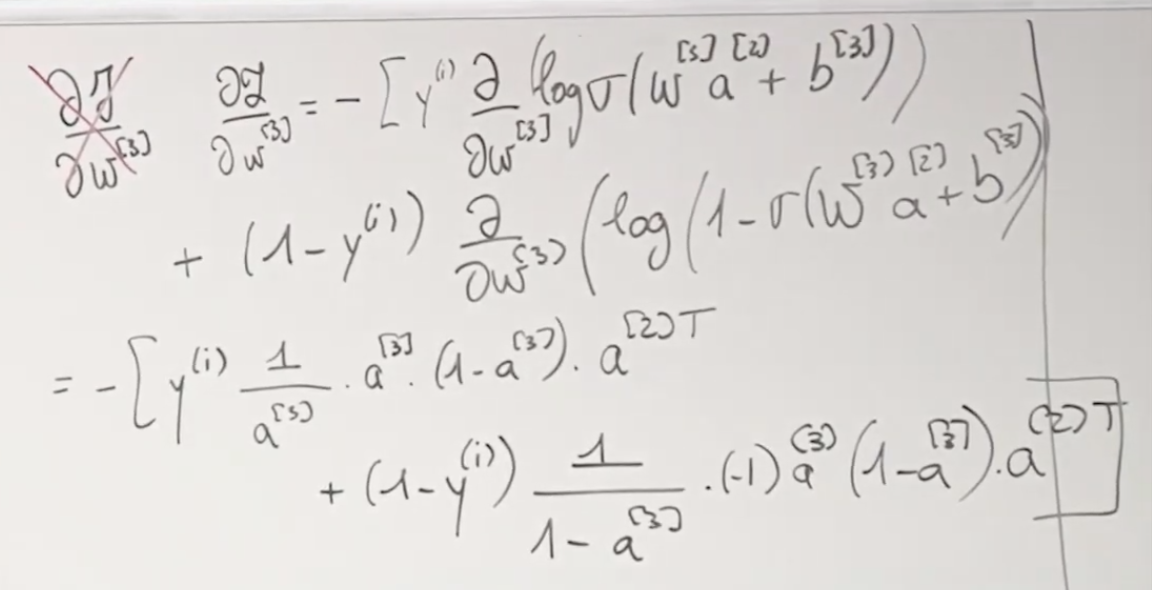 ∂J/∂w^[3] ∂ℒ/∂w^[3] = - [ y^(i) ∂/∂w^[3] (log σ(w^[3] a^[2] + b^[3]))
+ (1 - y^(i)) ∂/∂w^[3] (log (1 - σ(w^[3] a^[2] + b^[3]))
= - [ y^(i) 1/a^[3] · a^[3] · (1 - a^[3]) · a^[2]T
+ (1 - y^(i)) 1/(1 - a^[3]) · (-1) a^[3] (1 - a^[3]) · a^[2]T ]